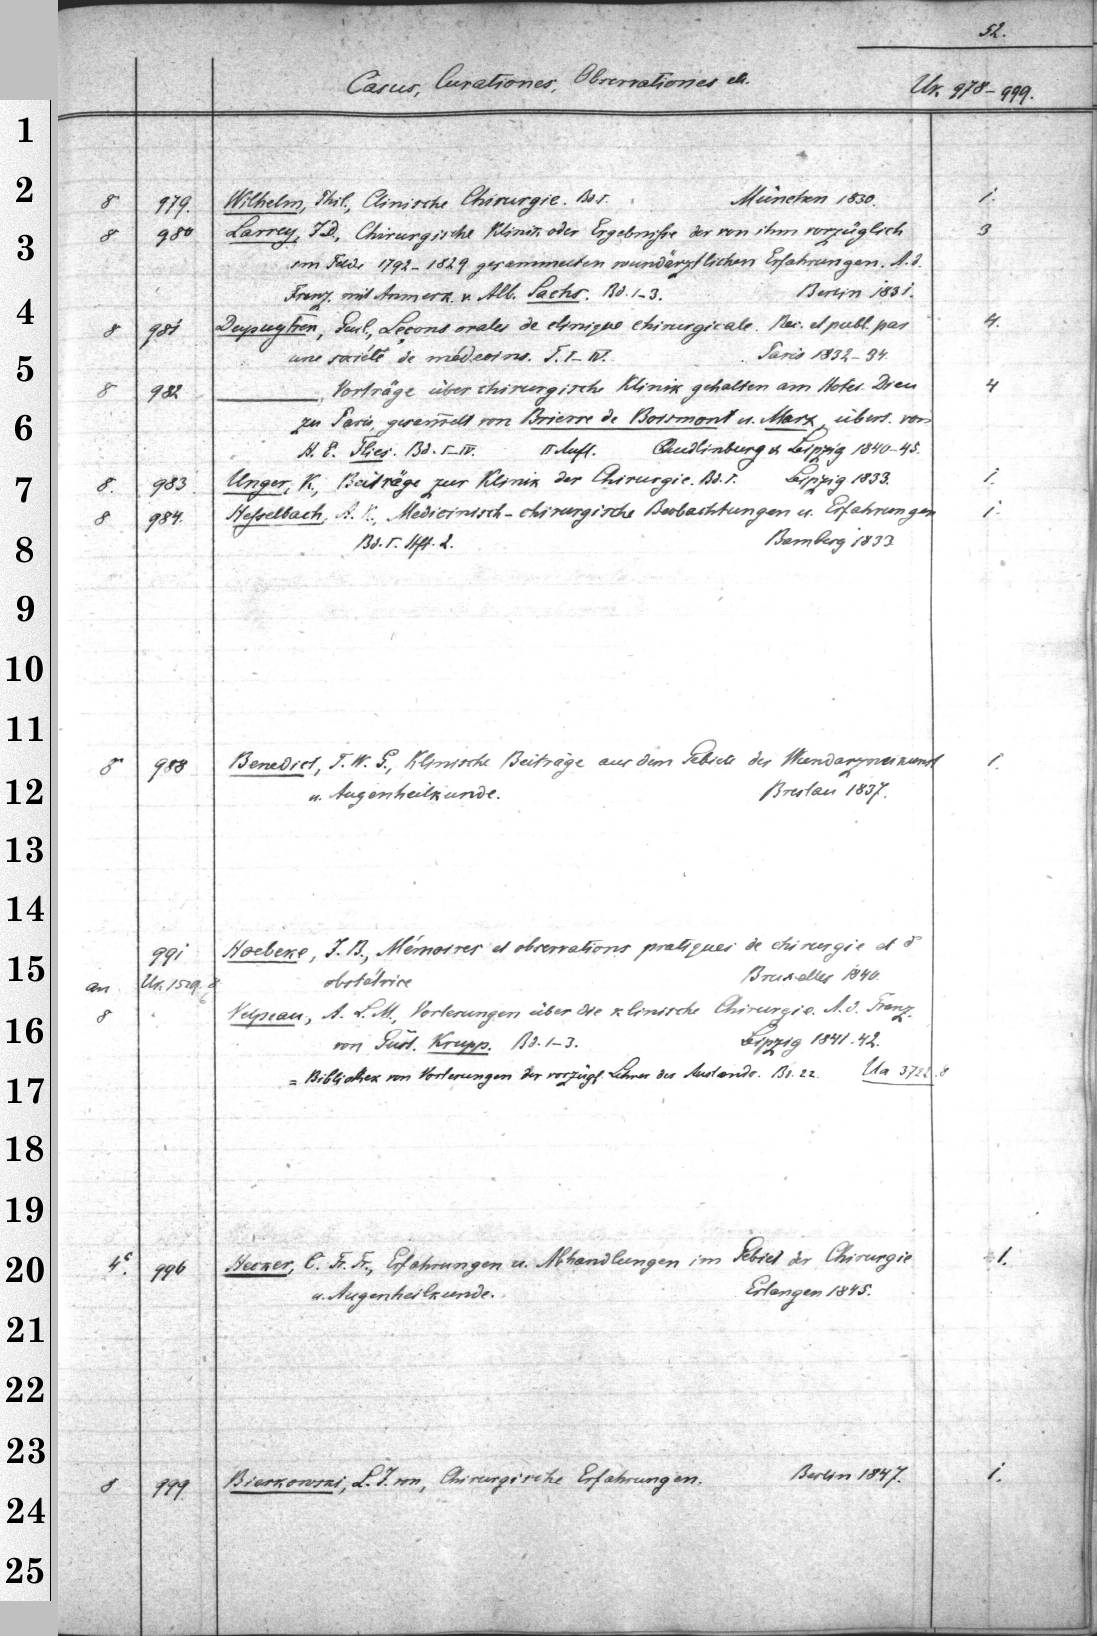 52.
Casus, Curationes, Observationes etc. Uk 978-999.
1
2
8 979. Wilhelm, Phil., Clinische Chirurgie. Bd I. München 1830. 1.
8 980 Larrey, J.D., Chirurgische Klinik oder Ergebnisse der von ihm vorzüglich 3
3
im Felde 1792-1829 gesammelten wundärztlichen Erfahrungen. A.d.
Franz. mit Anmerk. v. Alb. Sachs. Bd. 1-3. Berlin 1831.
4
8 981 Dupuytren, Guil., Leçons orales de clinique chirurgicale. Rec. et publ. par 4.
une société de médecins. T. I-IV. Paris 1832-34.
5
8 982 ______, Vorträge über chirurgische Klinik gehalten am Hotel Dieu 4
6
zu Paris, gesam̅elt von Brierre de Boismont u. Marx, übers. von
H. E. Flies. Bd. I-IV. II Aufl. Quedlinburg & Leipzig 1840-45.
7
8. 983 Unger, K., Beiträge zur Klinik der Chirurgie. Bd. I. Leipzig 1833. 1.
8 984. Hesselbach, A. K., Medicinisch-chirurgische Beobachtungen u. Erfahrungen 1.
8
Bd. I. Hft. 2. Bamberg 1833
9
10
11
8 988 Benedict, T. W. G., Klinische Beiträge aus dem Gebiete der Wundarzneikunst 1.
12
u. Augenheilkunde. Breslau 1837.
13
14
991 Hoebeke, J. B., Mémoires et observations pratiques de chirurgie et d
15
an Uk. 1529. 8 obstétrice Bruxelles 1840.
8 Velpeau, A. L. M., Vorlesungen über die klinische Chirurgie. A. d. Franz.
16
von Gust. Krupp. Bd. 1-3. Leipzig 1841-42.
17
= Bibliothek von Vorlesungen der vorzügl. Lehrer des Auslandes. Bd. 22. Ua 3722. 8
18
19
20
4° 996 Hecker, C. Fr. Fr., Erfahrungen u. Abhandlungen im Gebiet der Chirurgie 1.
u. Augenheilkunde. Erlangen 1845.
21
22
23
8 999 Bierkowski, L. J. von, Chirurgische Erfahrungen. Berlin 1847. 1.
24
25